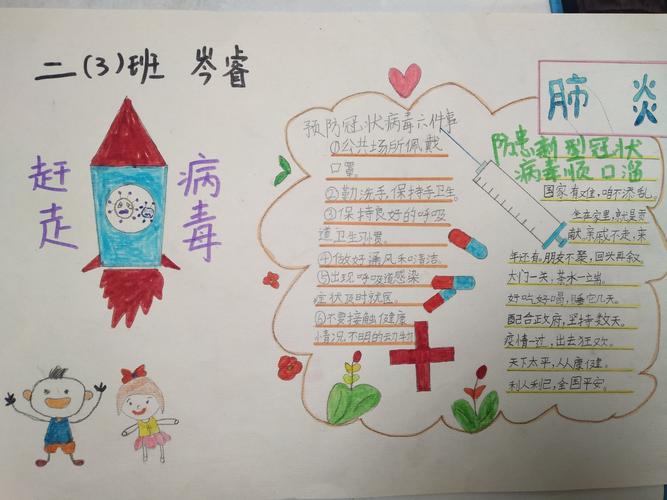 二(3)班 岑睿
赶走
病毒
肺炎
预防冠状病毒六件事
①公共场所佩戴
口罩。
②勤洗手,保持手卫生。
③保持良好的呼吸
道卫生习惯。
④做好通风和清洁。
⑤出现呼吸道感染
症状及时就医。
⑥不要接触健康
情况不明的动物
防患新型冠状
病毒顺口溜
国家有难,咱不添乱。
坐在家里,就是贡
献,亲戚不走,来
年还有,朋友不聚,回头再叙。
大门一关,茶水一端。
好吃好喝,睡它几天。
配合正政府,坚持数天。
疫情一过,出去狂欢。
天下太平,人人康健。
利人利己,全国平安。